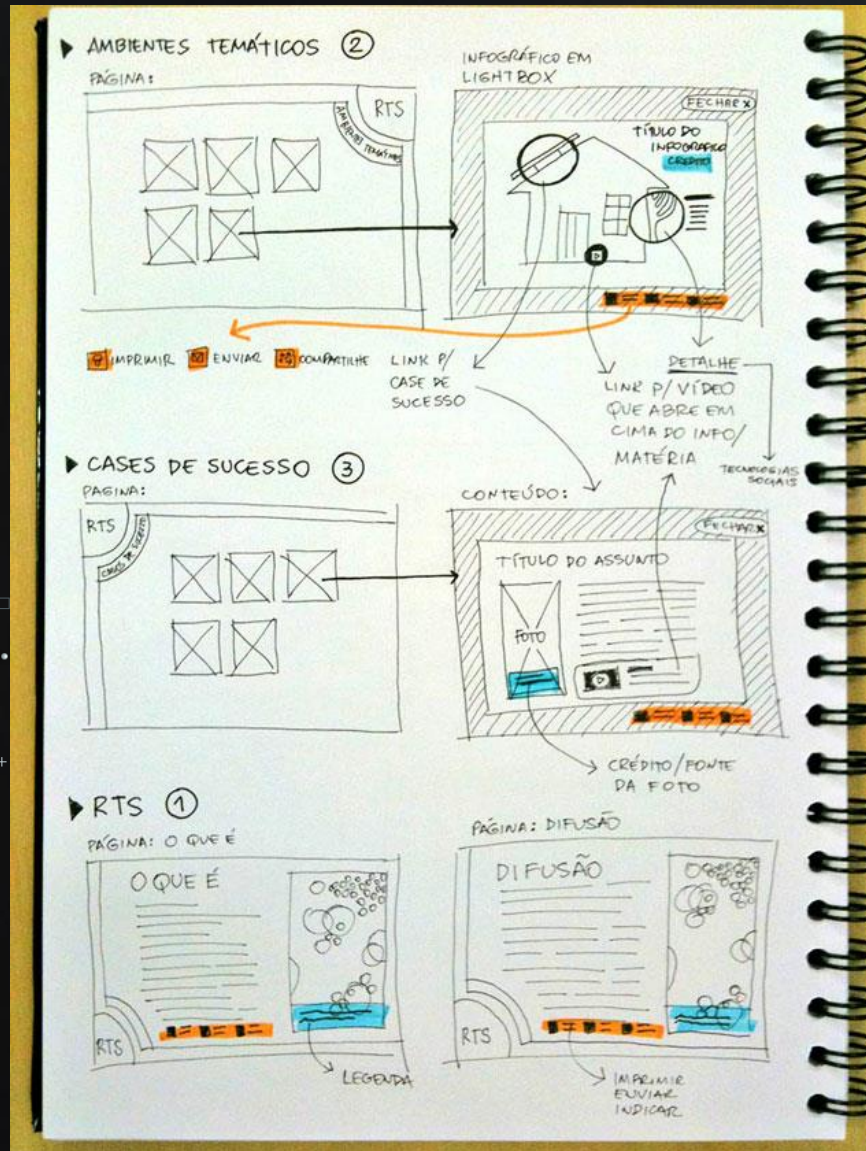 AMBIENTES TEMÁTICOS 2
PÁGINA:
RTS
AMBIENTES TEMÁTICOS
INFOGRÁFICO EM
LIGHTBOX
FECHAR X
TÍTULO DO
INFOGRÁFICO
CRÉDITO
IMPRIMIR ENVIAR COMPARTILHE
LINK P/
CASE DE
SUCESSO
DETALHE
LINK P/ VÍDEO
QUE ABRE EM
CIMA DO INFO/
MATÉRIA
TECNOLOGIAS
SOCIAIS
CASES DE SUCESSO 3
PAGINA:
RTS
CASES DE SUCESSO
CONTEÚDO:
FECHAR X
TÍTULO DO ASSUNTO
FOTO
CRÉDITO/FONTE
DA FOTO
RTS 1
PÁGINA: O QUE É
O QUE É
RTS
LEGENDA
PÁGINA: DIFUSÃO
DIFUSÃO
RTS
IMPRIMIR
ENVIAR
INDICAR